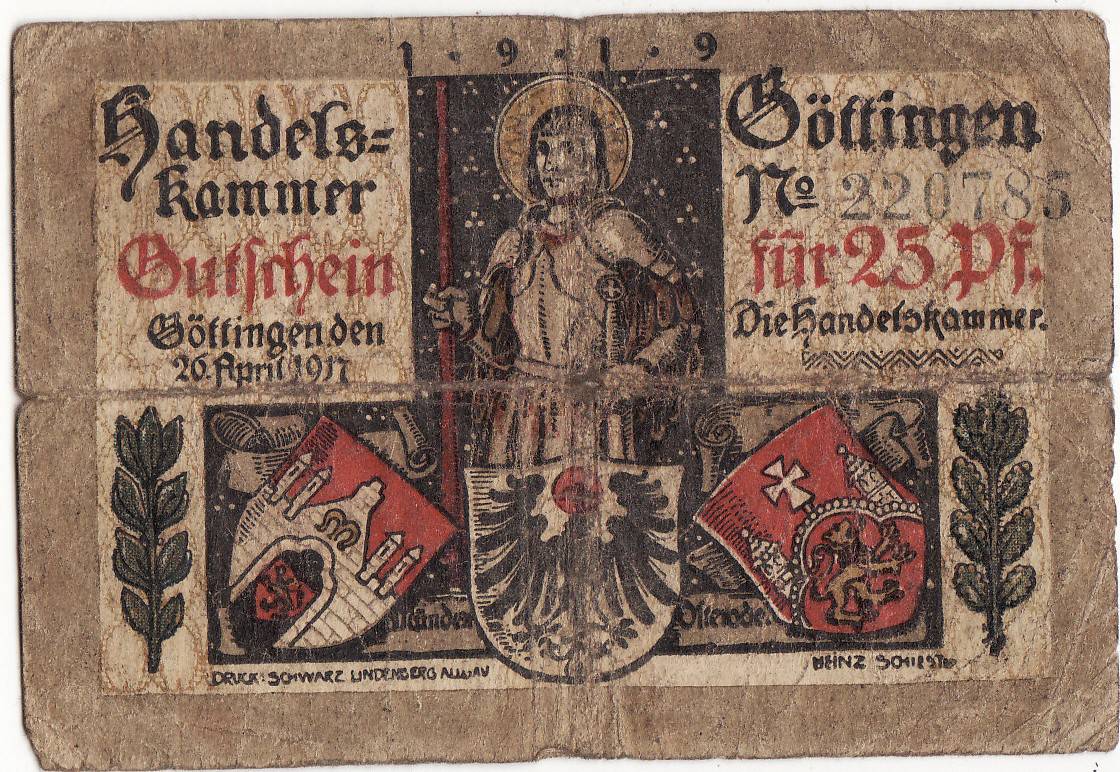 1·9·1·9
Handels-
kammer
Gutschein
Göttingen den
26. April 1917
Göttingen
No 220785
für 25 Pf.
Die Handelskammer.
Münden
Osterode
DRUCK: SCHWARZ LINDENBERG ALLGÄU
HEINZ SCHIESTL